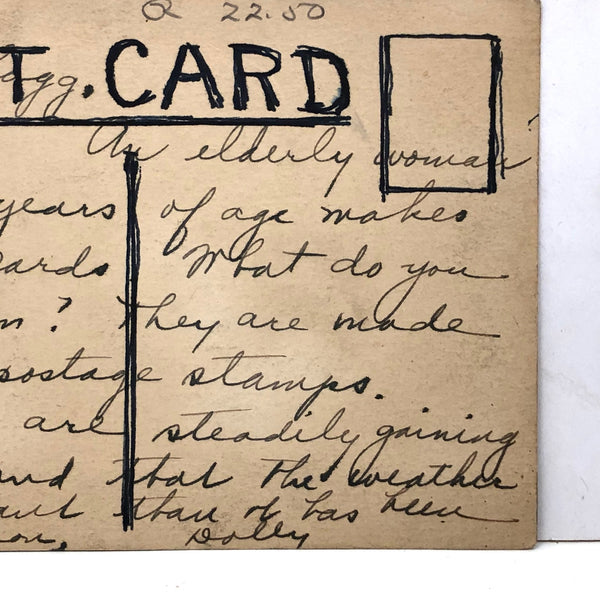 Q 22.50
T. CARD
agg.
An elderly woman
years of age makes
cards What do you
m? They are made
postage stamps.
are steadily gaining
and that the weather
than it has been
on, Dolly